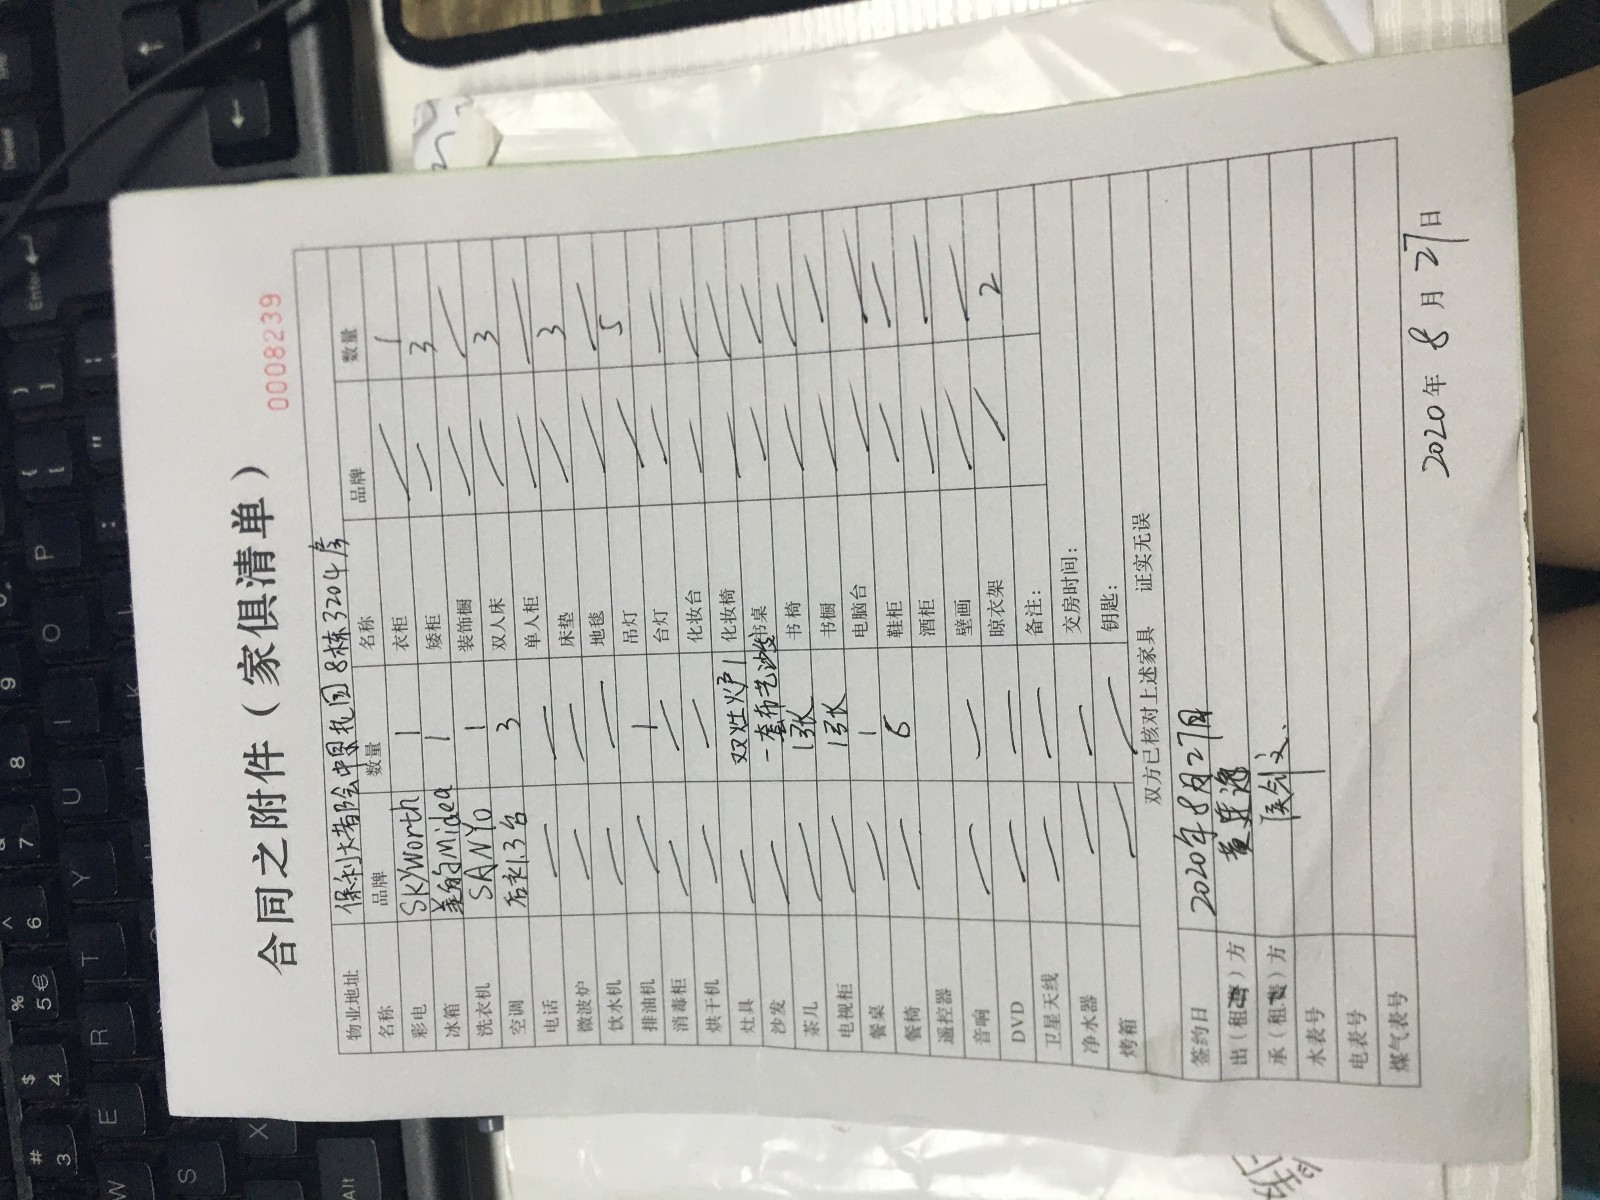 合同之附件（家俱清单）
0008239
物业地址 保利大都会中果花园8栋3204房
名称 品牌 数量 名称 品牌 数量
彩电 SKYWorth 1 衣柜 / 1
冰箱 美的Midea 1 矮柜 / 3
洗衣机 SANYO 1 装饰橱 / /
空调 3 双人床 / 3
电话 / / 单人柜 / /
微波炉 / / 床垫 / 3
饮水机 / / 地毯 / /
排油机 / 1 吊灯 / 5
消毒柜 / / 台灯 / /
烘干机 / / 化妆台 / /
灶具 / 双灶火炉1 化妆椅 / /
沙发 / 一套布艺沙发 书桌 / /
茶几 / 1张 书椅 / /
电视柜 / 1张 书橱 / /
餐桌 / 1 电脑台 / /
餐椅 / 6 鞋柜 / /
遥控器 酒柜 / /
音响 / / 壁画 / /
DVD / / 晾衣架 / 2
卫星天线 / / 备注：
净水器 / / 交房时间：
烤箱 / / 钥匙：
双方已核对上述家具 证实无误
签约日 2020年8月27日
出（租）方
承（租）方
水表号
电表号
煤气表号
2020年8月27日
3 # 4 $ 5 % € 6 ^ 7 & 8 9
W E R T Y U I O P
S X K
Alt
Enter